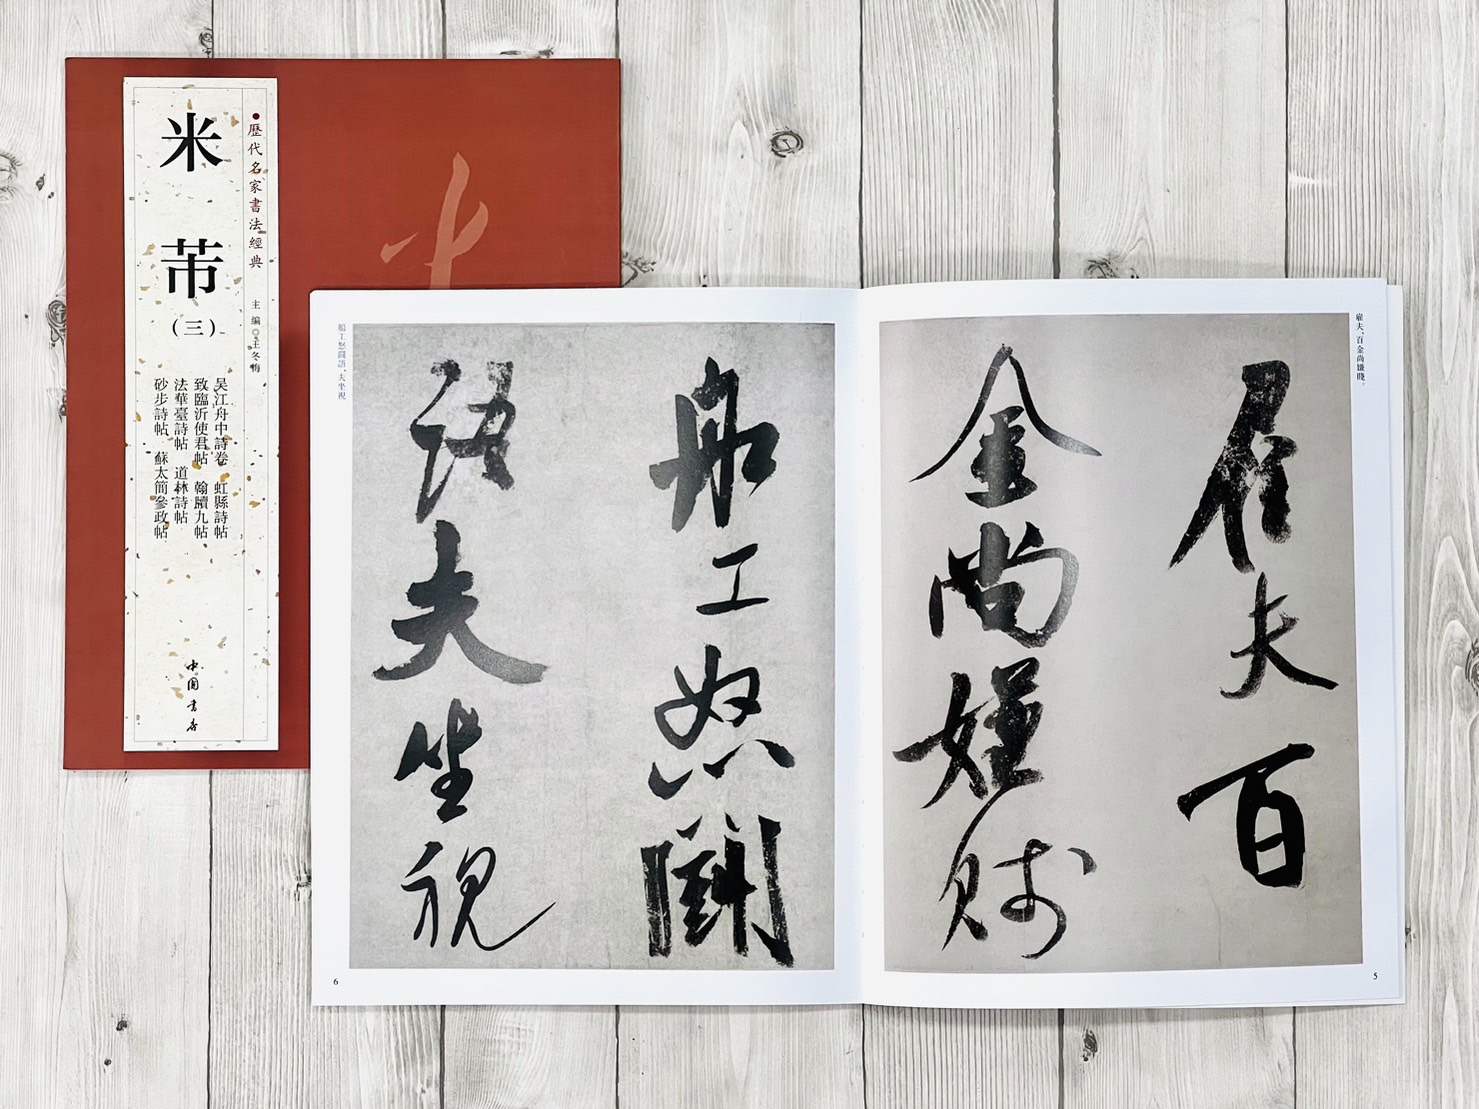 歷代名家書法經典
主編◎王冬梅
米芾
(三)
吴江舟中詩卷 虹縣詩帖
致臨沂使君帖 翰牘九帖
法華臺詩帖 道林詩帖
砂步詩帖 蘇太簡參政帖
中國書店
雇夫,百金尚嫌賤。
雇夫百
金尚嫌賤
5
船工怒鬪
語夫坐視
船工怒鬪語,夫坐視
6